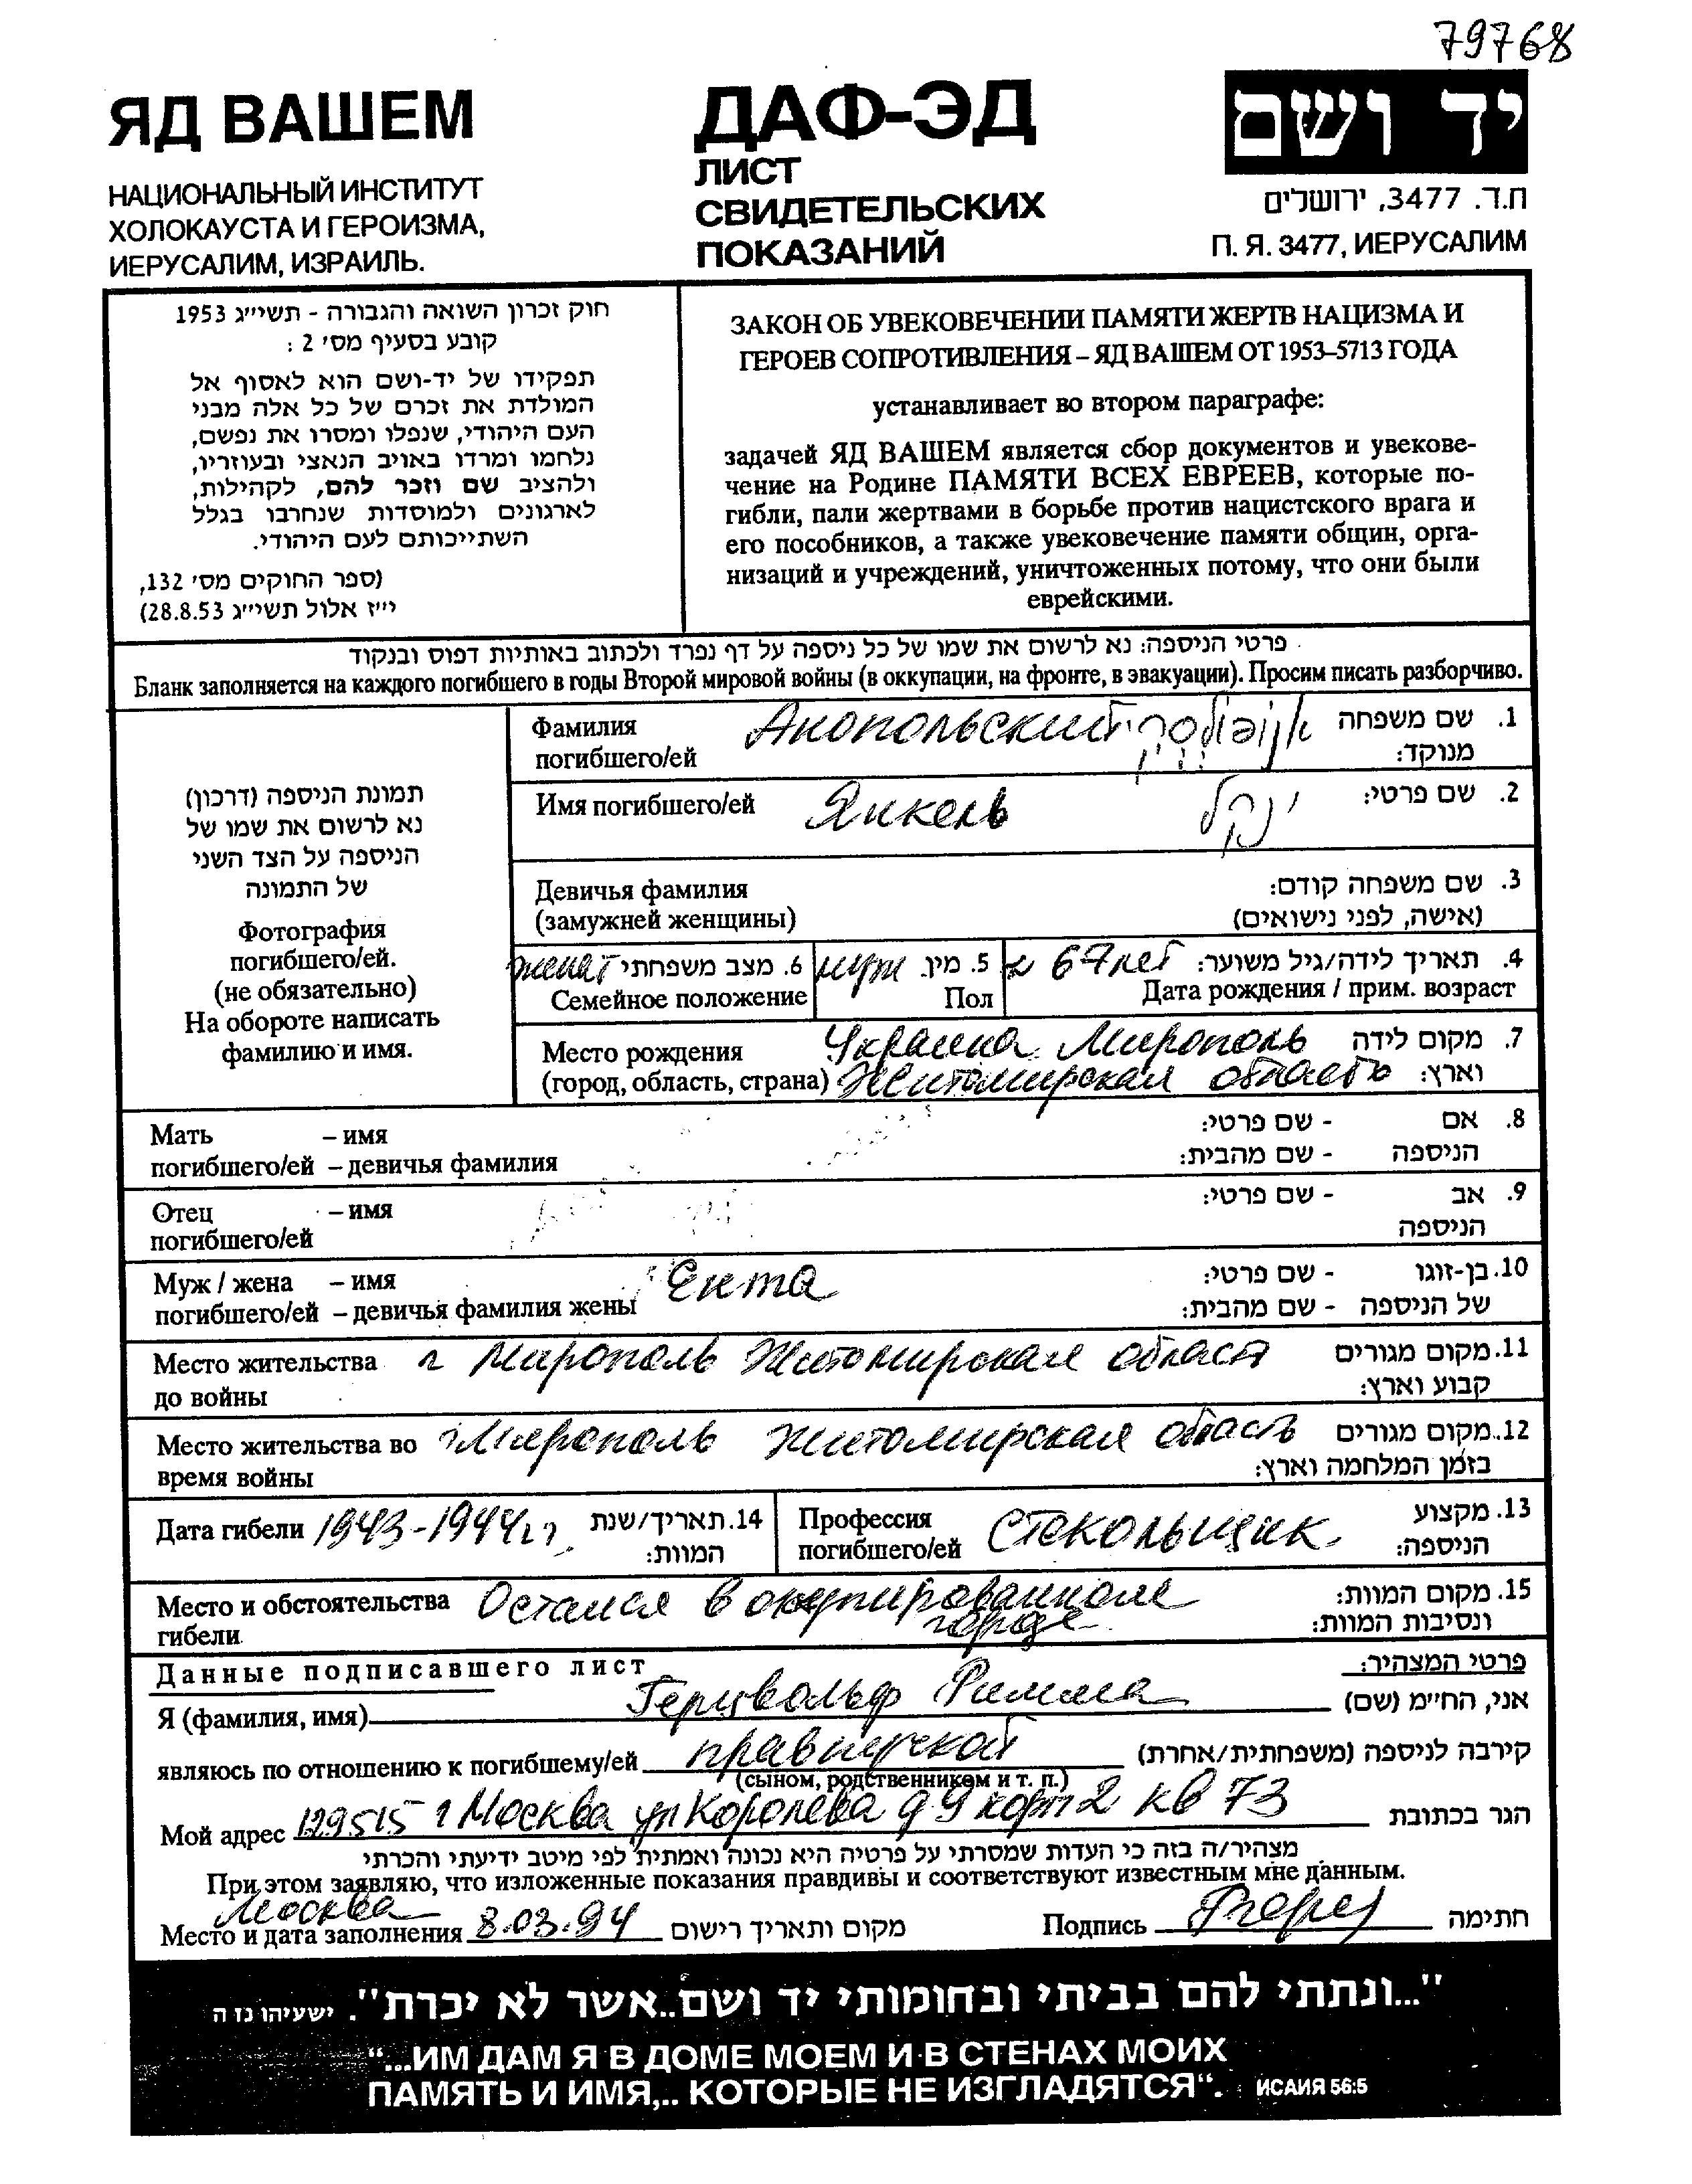 79768
ЯД ВАШЕМ
НАЦИОНАЛЬНЫЙ ИНСТИТУТ
ХОЛОКАУСТА И ГЕРОИЗМА,
ИЕРУСАЛИМ, ИЗРАИЛЬ.
ДАФ-ЭД
ЛИСТ
СВИДЕТЕЛЬСКИХ
ПОКАЗАНИЙ
יד ושם
ת.ד. 3477, ירושלים
П. Я. 3477, ИЕРУСАЛИМ
חוק זכרון השואה והגבורה - תשי״ג 1953
קובע בסעיף מס׳ 2 :
תפקידו של יד-ושם הוא לאסוף אל
המולדת את זכרם של כל אלה מבני
העם היהודי, שנפלו ומסרו את נפשם,
נלחמו ומרדו באויב הנאצי ובעוזריו,
ולהציב שם וזכר להם, לקהילות,
לארגונים ולמוסדות שנחרבו בגלל
השתייכותם לעם היהודי.
(ספר החוקים מס׳ 132,
י״ז אלול תשי״ג 28.8.53)
ЗАКОН ОБ УВЕКОВЕЧЕНИИ ПАМЯТИ ЖЕРТВ НАЦИЗМА И
ГЕРОЕВ СОПРОТИВЛЕНИЯ – ЯД ВАШЕМ ОТ 1953–5713 ГОДА
устанавливает во втором параграфе:
задачей ЯД ВАШЕМ является сбор документов и увекове-
чение на Родине ПАМЯТИ ВСЕХ ЕВРЕЕВ, которые по-
гибли, пали жертвами в борьбе против нацистского врага и
его пособников, а также увековечение памяти общин, орга-
низаций и учреждений, уничтоженных потому, что они были
еврейскими.
פרטי הניספה: נא לרשום את שמו של כל ניספה על דף נפרד ולכתוב באותיות דפוס ובנקוד
Бланк заполняется на каждого погибшего в годы Второй мировой войны (в оккупации, на фронте, в эвакуации). Просим писать разборчиво.
תמונת הניספה (דרכון)
נא לרשום את שמו של
הניספה על הצד השני
של התמונה
Фотография
погибшего/ей.
(не обязательно)
На обороте написать
фамилию и имя.
Фамилия Анопольский אנופולסקי 1. שם משפחה
погибшего/ей מנוקד:
Имя погибшего/ей Янкель ינקל 2. שם פרטי:
Девичья фамилия 3. שם משפחה קודם:
(замужней женщины) (אישה, לפני נישואים)
женат 6. מצב משפחתי муж 5. מין. 67 лет 4. תאריך לידה/גיל משוער:
Семейное положение Пол Дата рождения / прим. возраст
Место рождения Украина Мирополь 7. מקום לידה
(город, область, страна) Житомирская область וארץ:
Мать – имя - שם פרטי: 8. אם
погибшего/ей – девичья фамилия - שם מהבית: הניספה
Отец – имя - שם פרטי: 9. אב
погибшего/ей הניספה
Муж / жена – имя Ента - שם פרטי: 10. בן-זוגו
погибшего/ей – девичья фамилия жены - שם מהבית: של הניספה
Место жительства г Мирополь Житомирская област 11. מקום מגורים
до войны קבוע וארץ:
Место жительства во г Мирополь Житомирская область 12. מקום מגורים
время войны בזמן המלחמה וארץ:
Дата гибели 1943-1944гг. 14. תאריך/שנת המוות:
Профессия Стекольщик. 13. מקצוע
погибшего/ей הניספה:
Место и обстоятельства Остался в окупированном 15. מקום המוות:
гибели городе ונסיבות המוות:
Данные подписавшего лист פרטי המצהיר:
Я (фамилия, имя) Герцвольф Римма אני, הח״מ (שם)
являюсь по отношению к погибшему/ей правнучкой קירבה לניספה (משפחתית/אחרת)
(сыном, родственником и т. п.)
Мой адрес 129515 г Москва ул Королева д 9 корп 2 кв 73 הגר בכתובת
מצהיר/ה בזה כי העדות שמסרתי על פרטיה היא נכונה ואמתית לפי מיטב ידיעתי והכרתי
При этом заявляю, что изложенные показания правдивы и соответствуют известным мне данным.
Москва
Место и дата заполнения 8.03.94 מקום ותאריך רישום Подпись חתימה
"...ונתתי להם בביתי ובחומותי יד ושם..אשר לא יכרת". ישעיהו נז ה
“...ИМ ДАМ Я В ДОМЕ МОЕМ И В СТЕНАХ МОИХ
ПАМЯТЬ И ИМЯ,.. КОТОРЫЕ НЕ ИЗГЛАДЯТСЯ“. ИСАИЯ 56:5